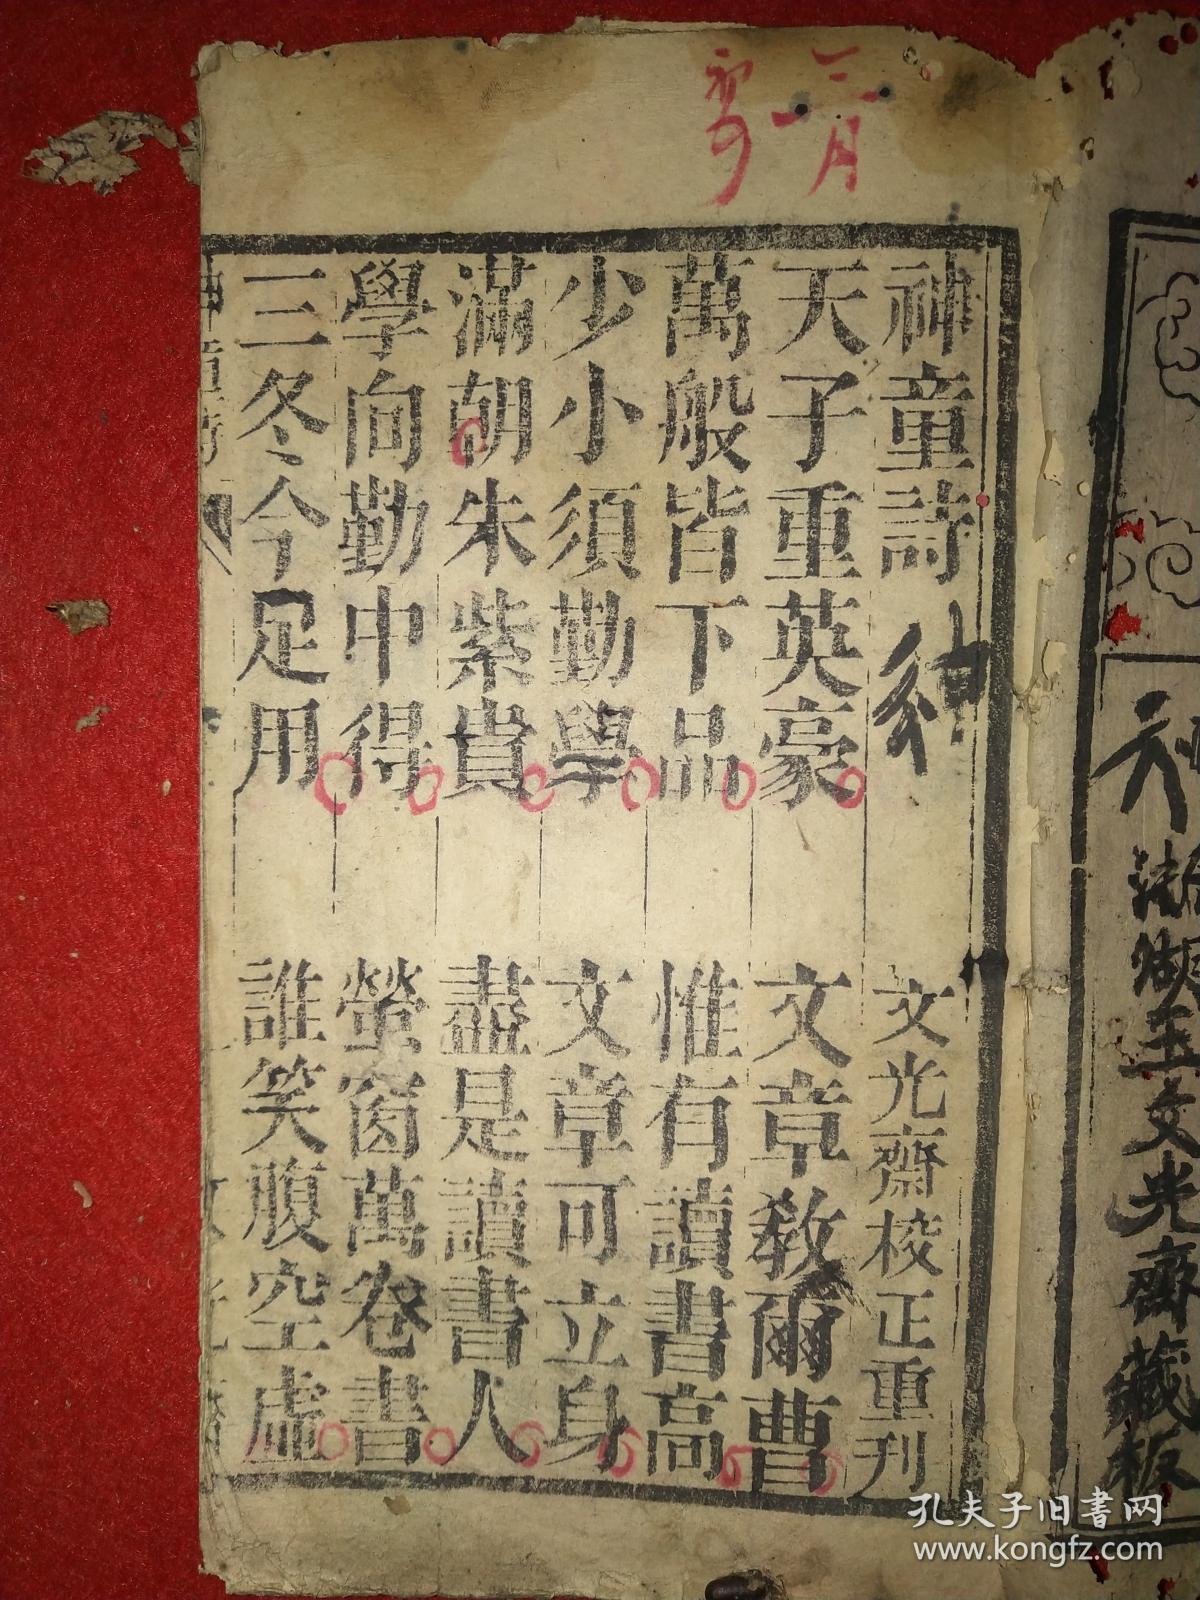 神童詩
文光齋校正重刊
天子重英豪
文章教爾曹
萬般皆下品
惟有讀書高
少小須勤學
文章可立身
滿朝朱紫貴
盡是讀書人
學向勤中得
螢窗萬卷書
三冬今足用
誰笑腹空虛
二月
文光齋藏板
孔夫子旧书网
www.kongfz.com